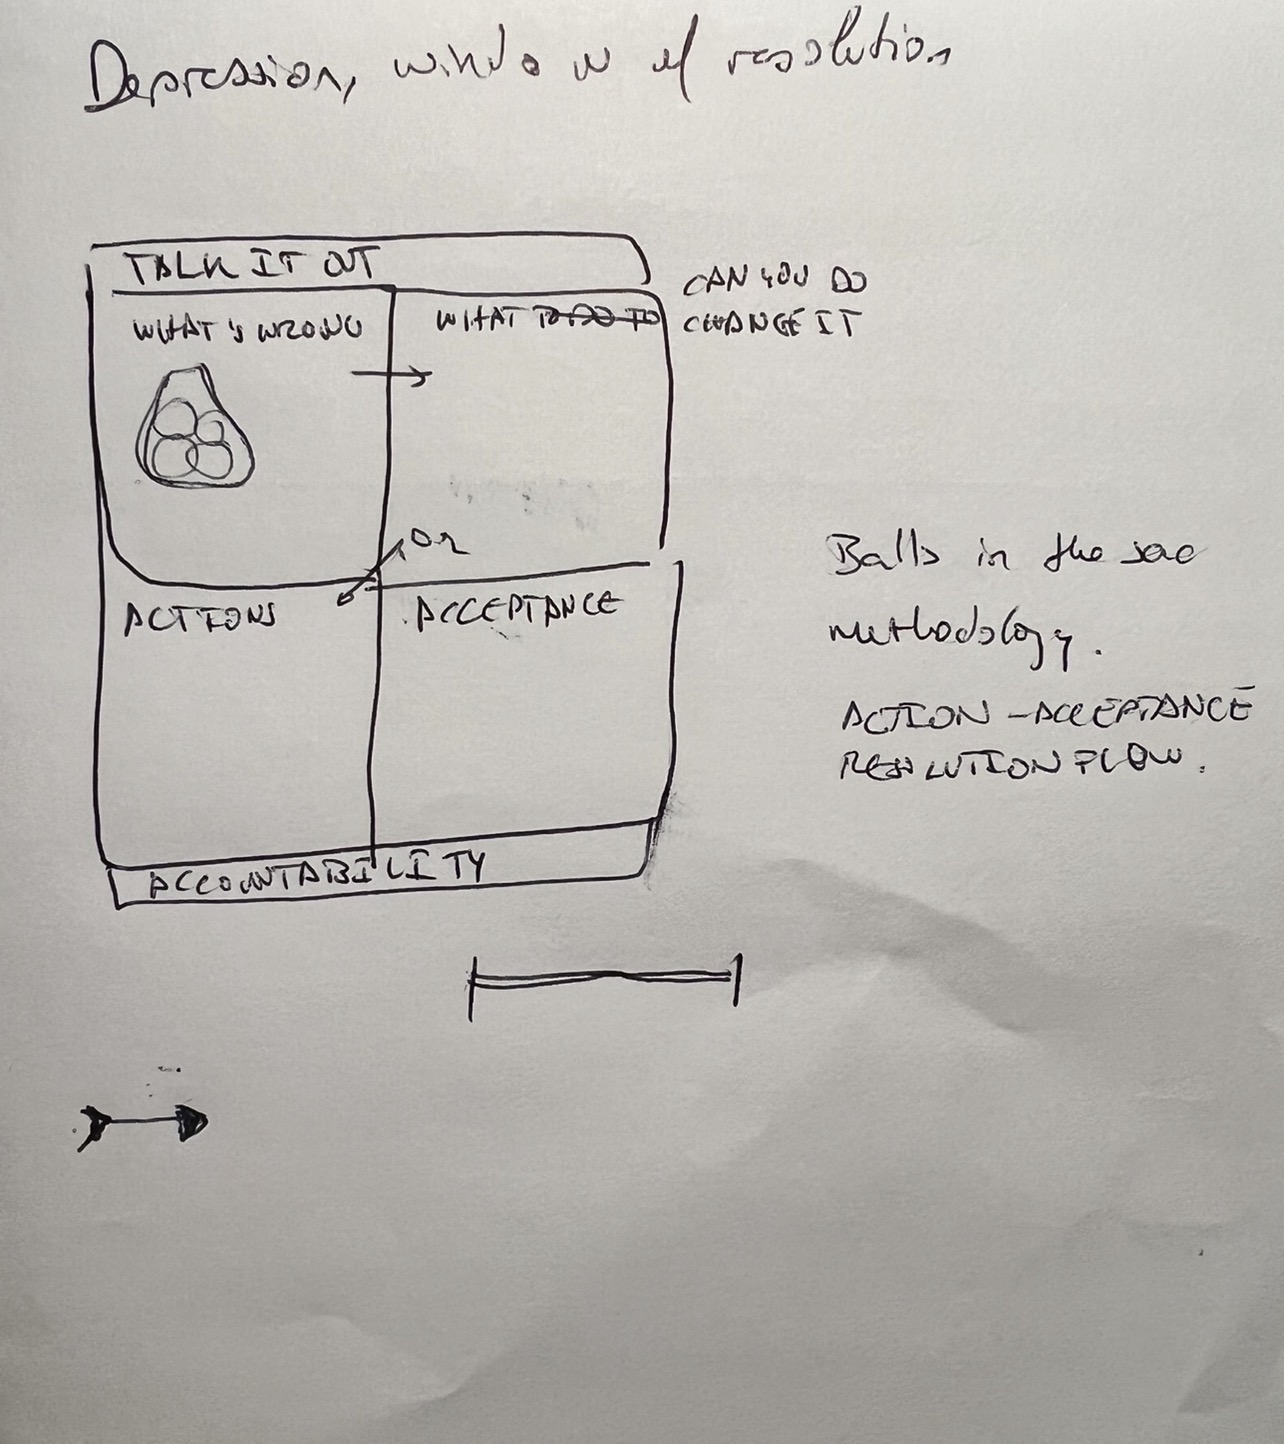 Depression, window of resolution
TALK IT OUT
WHAT'S WRONG
WHAT TO DO TO
CAN YOU DO
CHANGE IT
OR
ACTIONS
ACCEPTANCE
ACCOUNTABILITY
Balls in the sac
methodology.
ACTION - ACCEPTANCE
RESOLUTION FLOW.